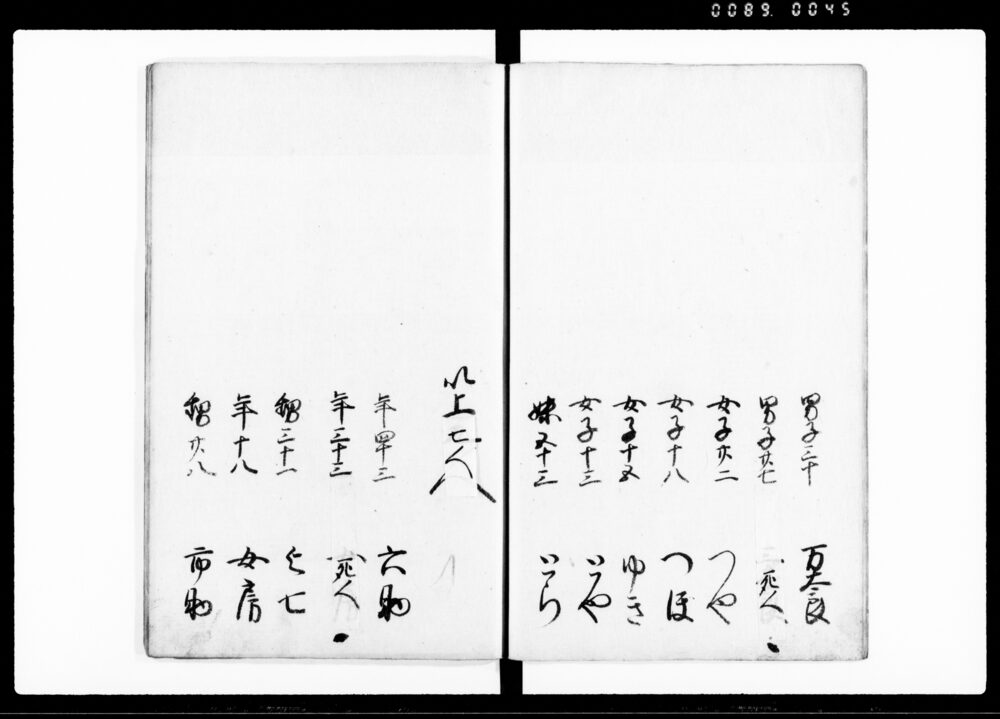 0089. 0045
男子三十 万太良
男子廿七 死人
女子廿二 つや
女子十八 つほ
女子十五 ゆき
女子十三 いや
妹五十三
以上七人
年四十三 六助
年三十三 死人
甥三十一 与七
年十八 女房
甥廿八 市助